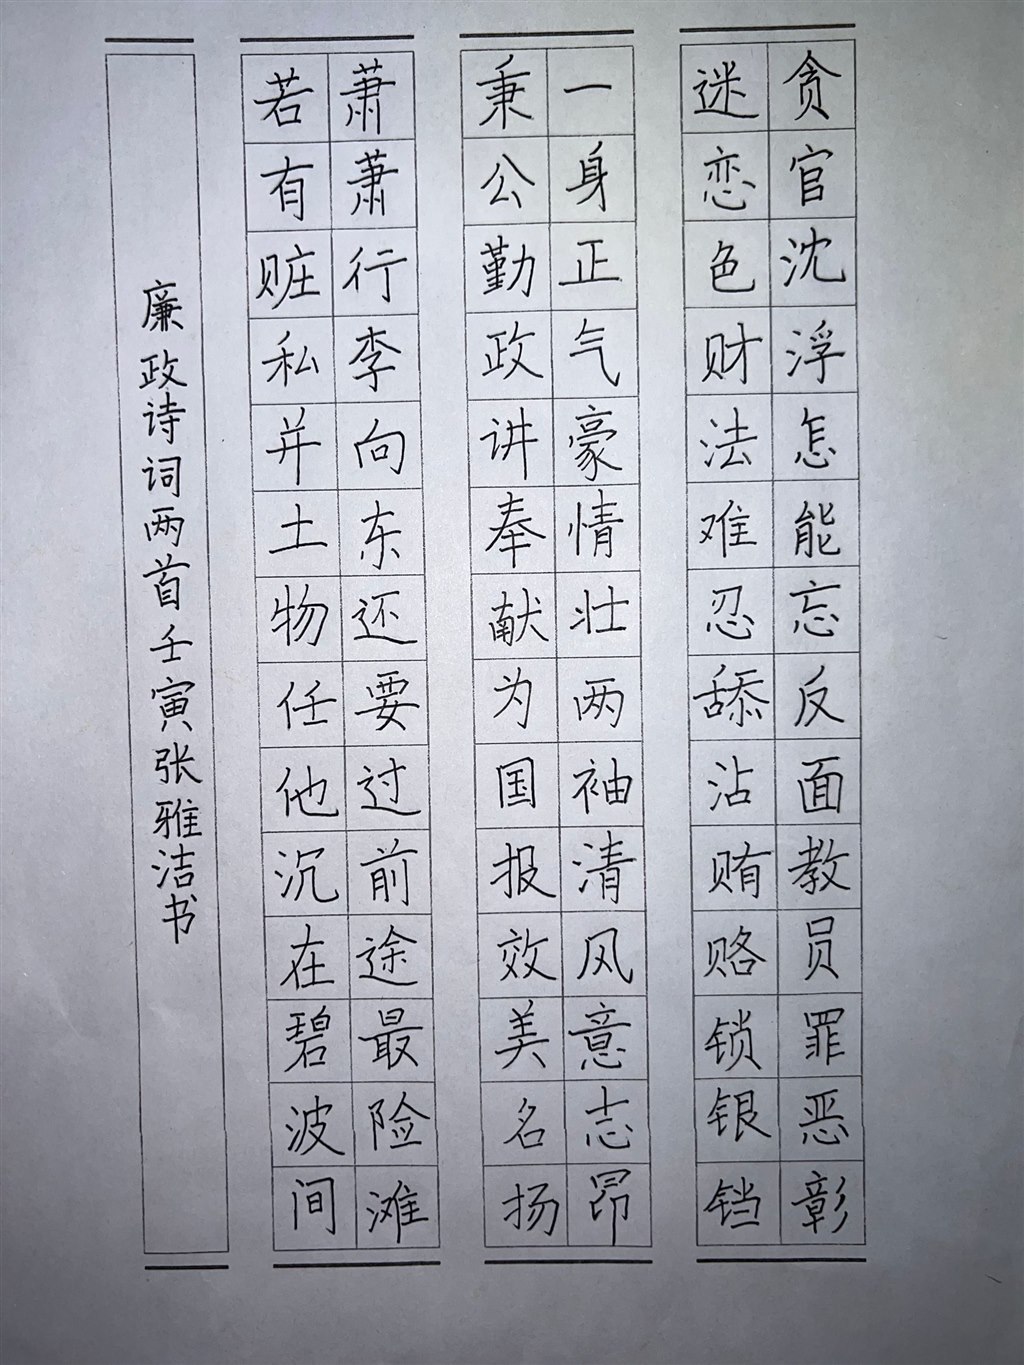 贪官沈浮怎能忘反面教员罪恶彰
迷恋色财法难忍舔沾贿赂锁银铛
一身正气豪情壮两袖清风意志昂
秉公勤政讲奉献为国报效美名扬
萧萧行李向东还要过前途最险滩
若有赃私并土物任他沉在碧波间
廉政诗词两首壬寅张雅洁书